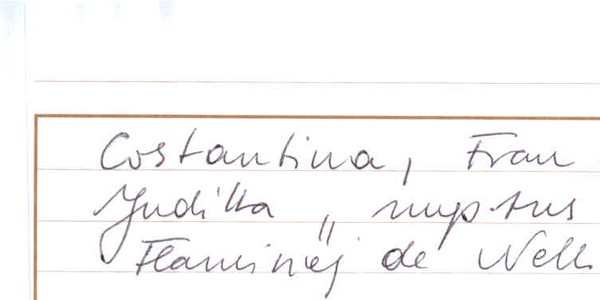 Costantina, Fran
Juditta „ nuptus
Flaminej de Nell